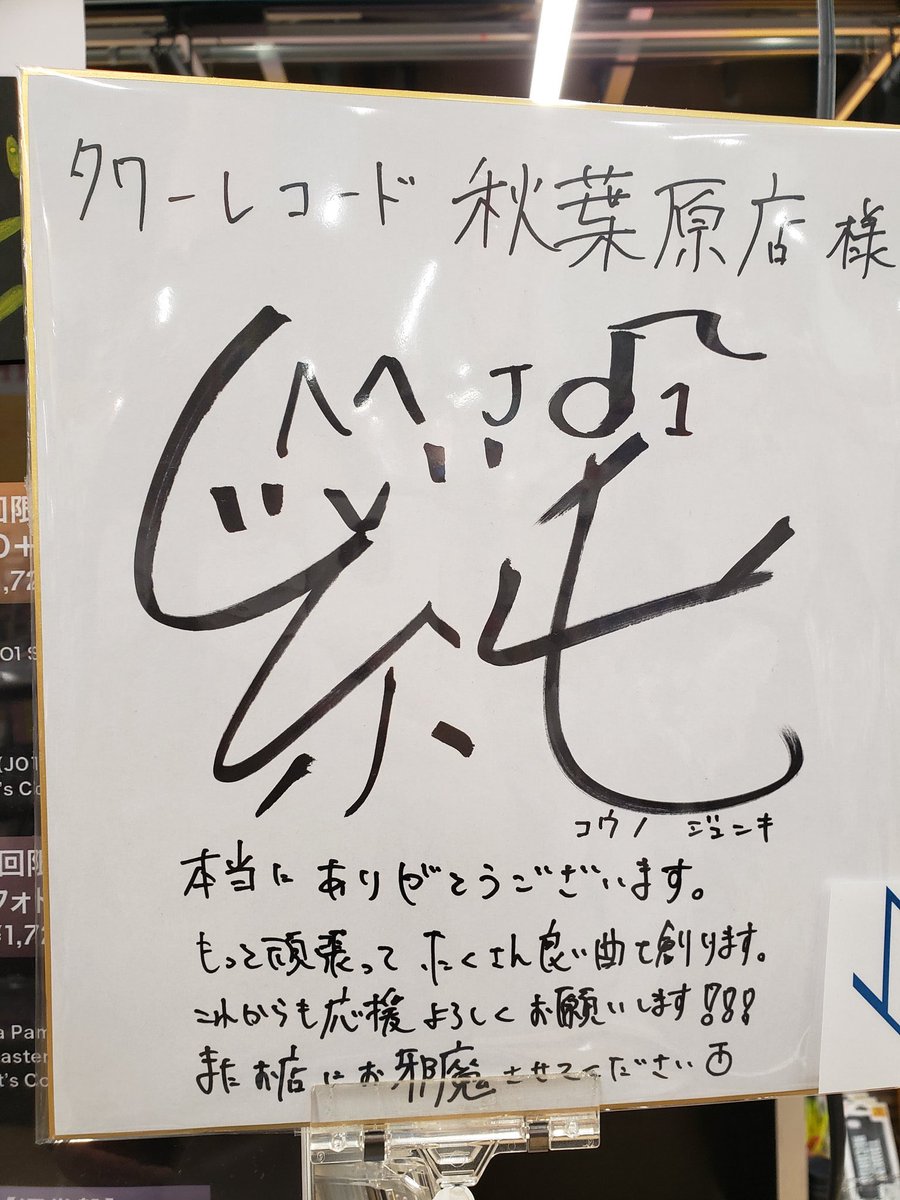 タワーレコード 秋葉原店 様
JO1
純
コウノ ジュンキ
本当にありがとうございます。
もっと頑張って たくさん良い曲を創ります。
これからも応援よろしくお願いします!!!
またお店にお邪魔させてください
回限
,72
JO1 S
(JO1
's Co
回限
フォト
¥1,72
a Pam
aster
t's Co